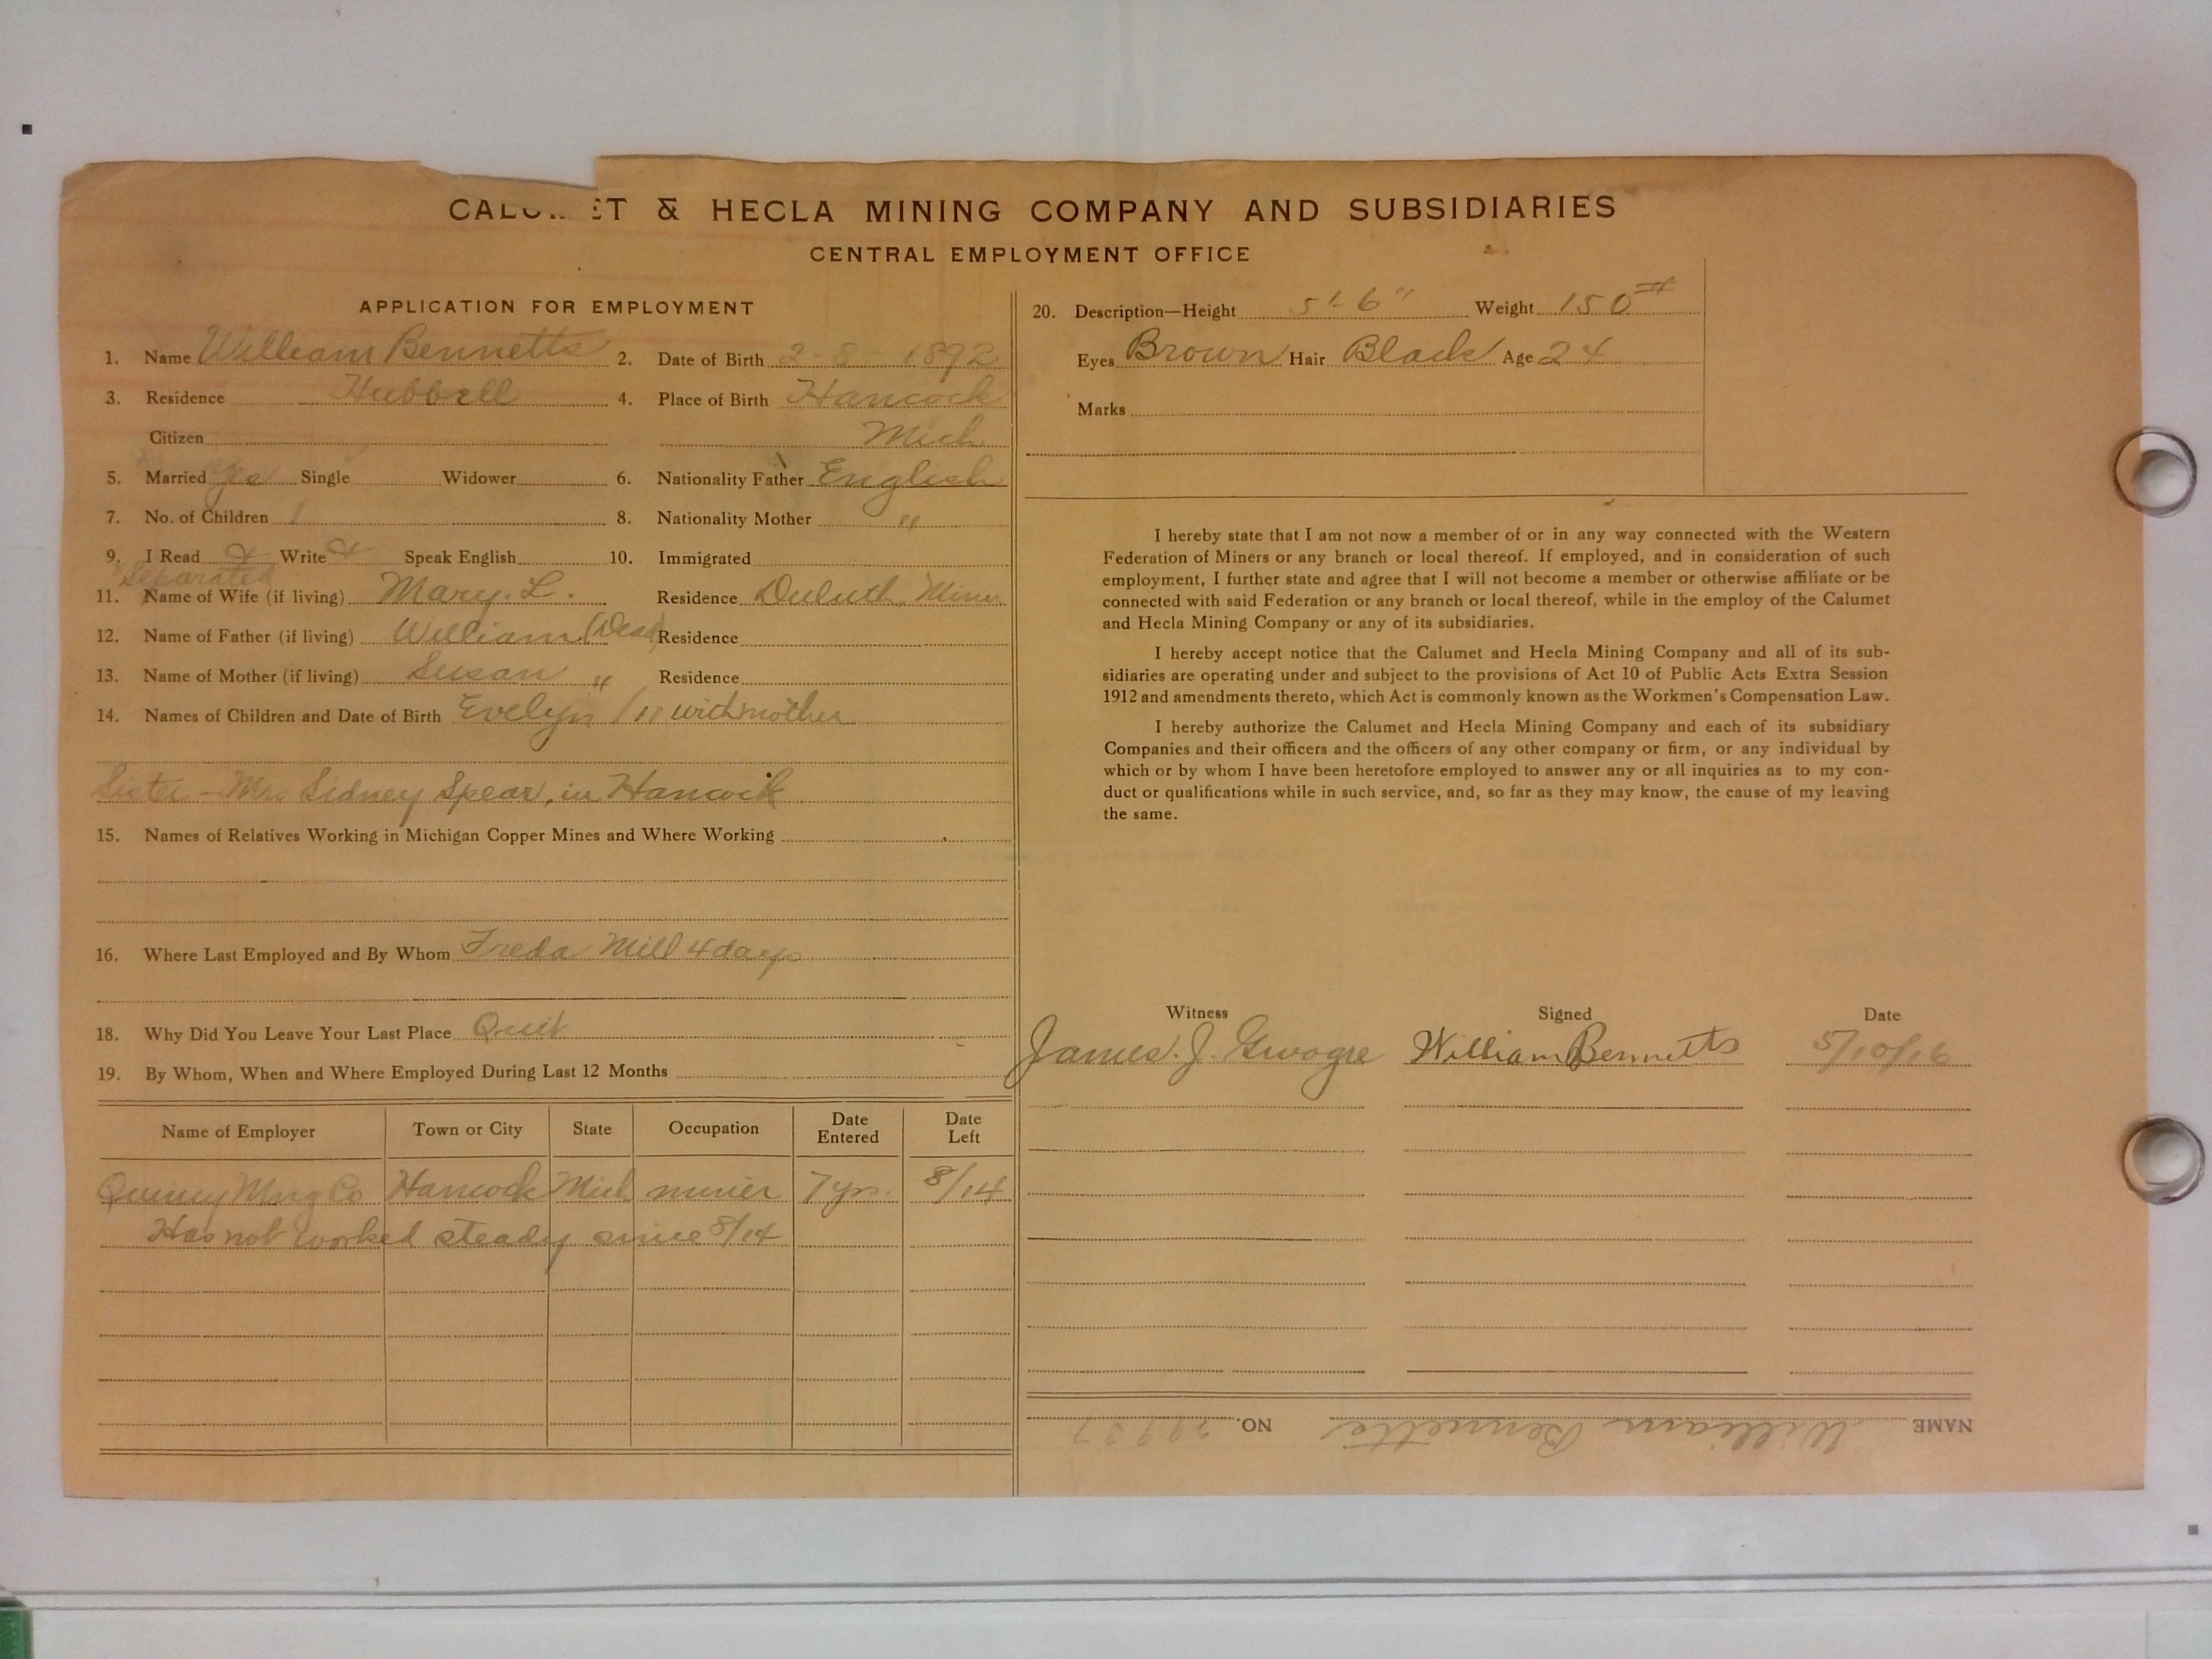 CALU... ET & HECLA MINING COMPANY AND SUBSIDIARIES
CENTRAL EMPLOYMENT OFFICE
APPLICATION FOR EMPLOYMENT
1. Name William Bennetts 2. Date of Birth 2-8-1892
3. Residence Hubbell 4. Place of Birth Hancock
Citizen Mich
5. Married yes Single Widower 6. Nationality Father English
7. No. of Children 1 8. Nationality Mother "
9. I Read Write Speak English 10. Immigrated
Separated
11. Name of Wife (if living) Mary. L. Residence Duluth Minn
12. Name of Father (if living) William (Dead) Residence
13. Name of Mother (if living) Susan " Residence
14. Names of Children and Date of Birth Evelyn with mother
Sister - Mrs Sidney Spear, in Hancock
15. Names of Relatives Working in Michigan Copper Mines and Where Working
16. Where Last Employed and By Whom Freda Mill 4 days
18. Why Did You Leave Your Last Place Quit
19. By Whom, When and Where Employed During Last 12 Months
Name of Employer Town or City State Occupation Date Entered Date Left
Quincy Mng Co Hancock Mich miner 7 yrs. 8/14
Has not worked steady since 8/14
20. Description—Height 5'-6" Weight 150#
Eyes Brown Hair Black Age 24
Marks
I hereby state that I am not now a member of or in any way connected with the Western
Federation of Miners or any branch or local thereof. If employed, and in consideration of such
employment, I further state and agree that I will not become a member or otherwise affiliate or be
connected with said Federation or any branch or local thereof, while in the employ of the Calumet
and Hecla Mining Company or any of its subsidiaries.
I hereby accept notice that the Calumet and Hecla Mining Company and all of its sub-
sidiaries are operating under and subject to the provisions of Act 10 of Public Acts Extra Session
1912 and amendments thereto, which Act is commonly known as the Workmen's Compensation Law.
I hereby authorize the Calumet and Hecla Mining Company and each of its subsidiary
Companies and their officers and the officers of any other company or firm, or any individual by
which or by whom I have been heretofore employed to answer any or all inquiries as to my con-
duct or qualifications while in such service, and, so far as they may know, the cause of my leaving
the same.
Witness Signed Date
James. J. William Bennetts 5/10/16
NAME William Bennetts NO.